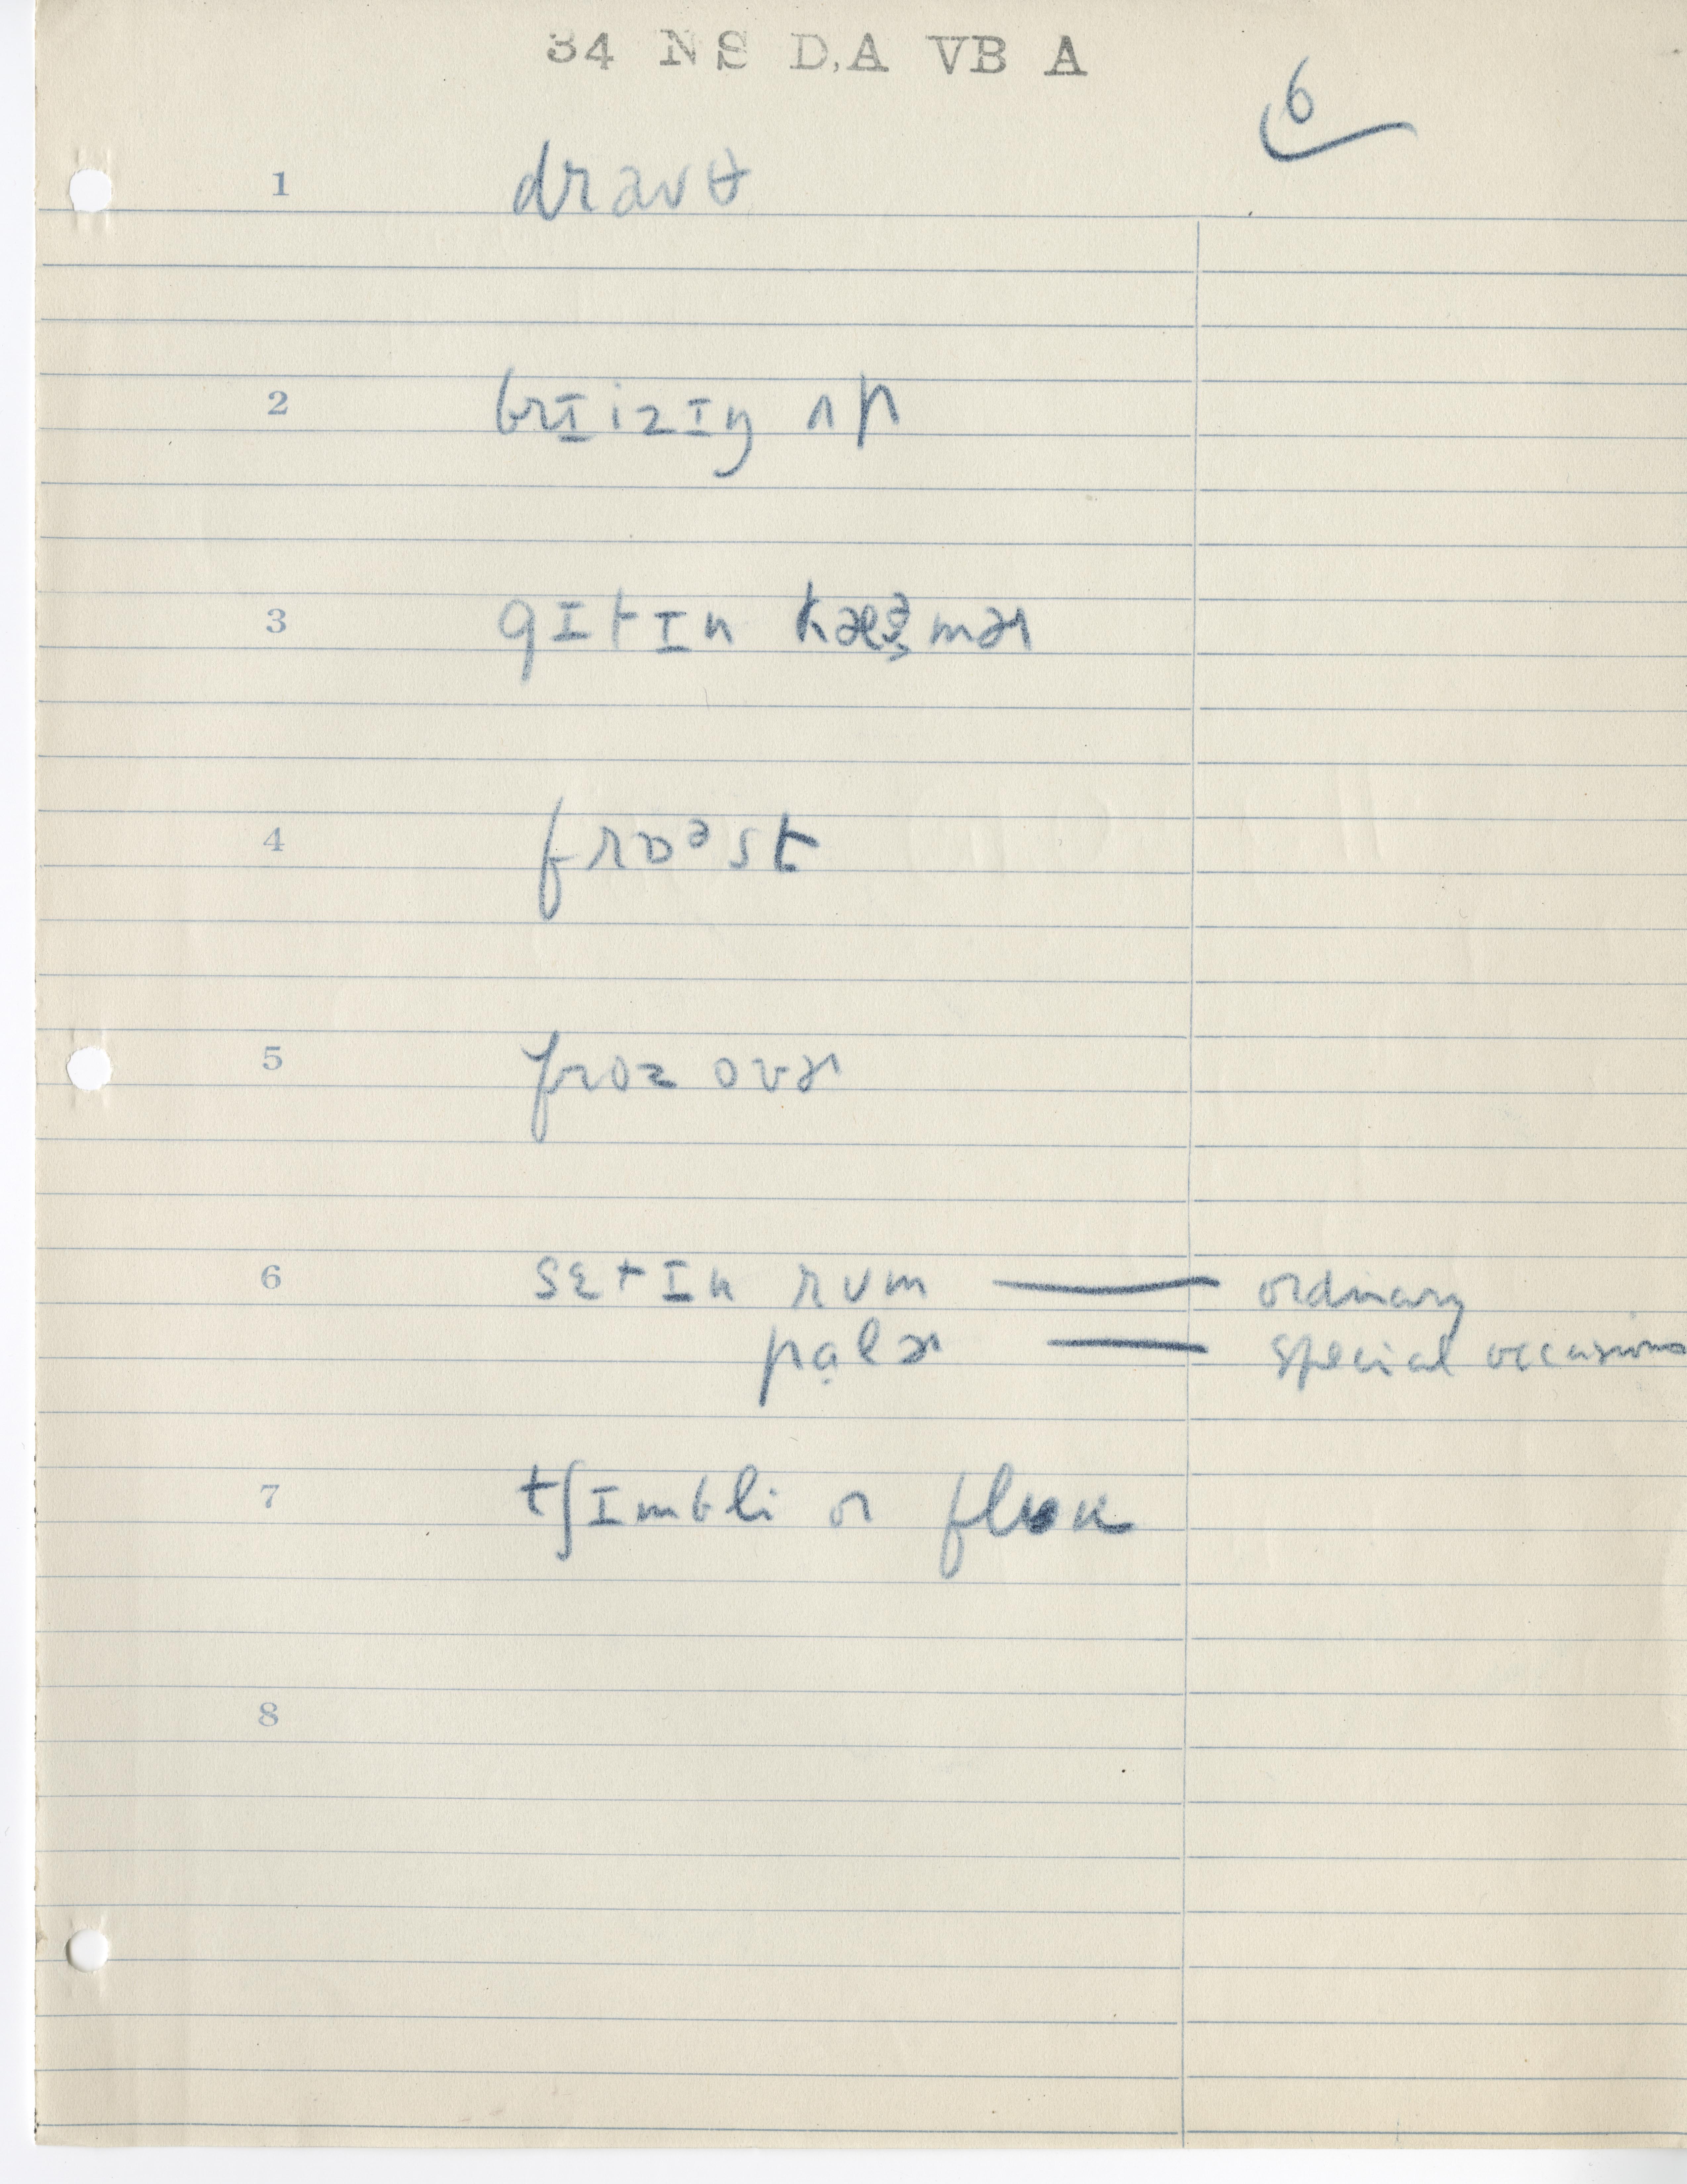 34 NS D,A VB A
6
1 draʊθ
2 brɪizɪŋ ʌp
3 gɪtɪn
4 frɒᵊst
5 froz ovɚ
6 sɛtɪn rum — ordinary
pɑlɚ — special occasions
7 tʃɪmbli or
8